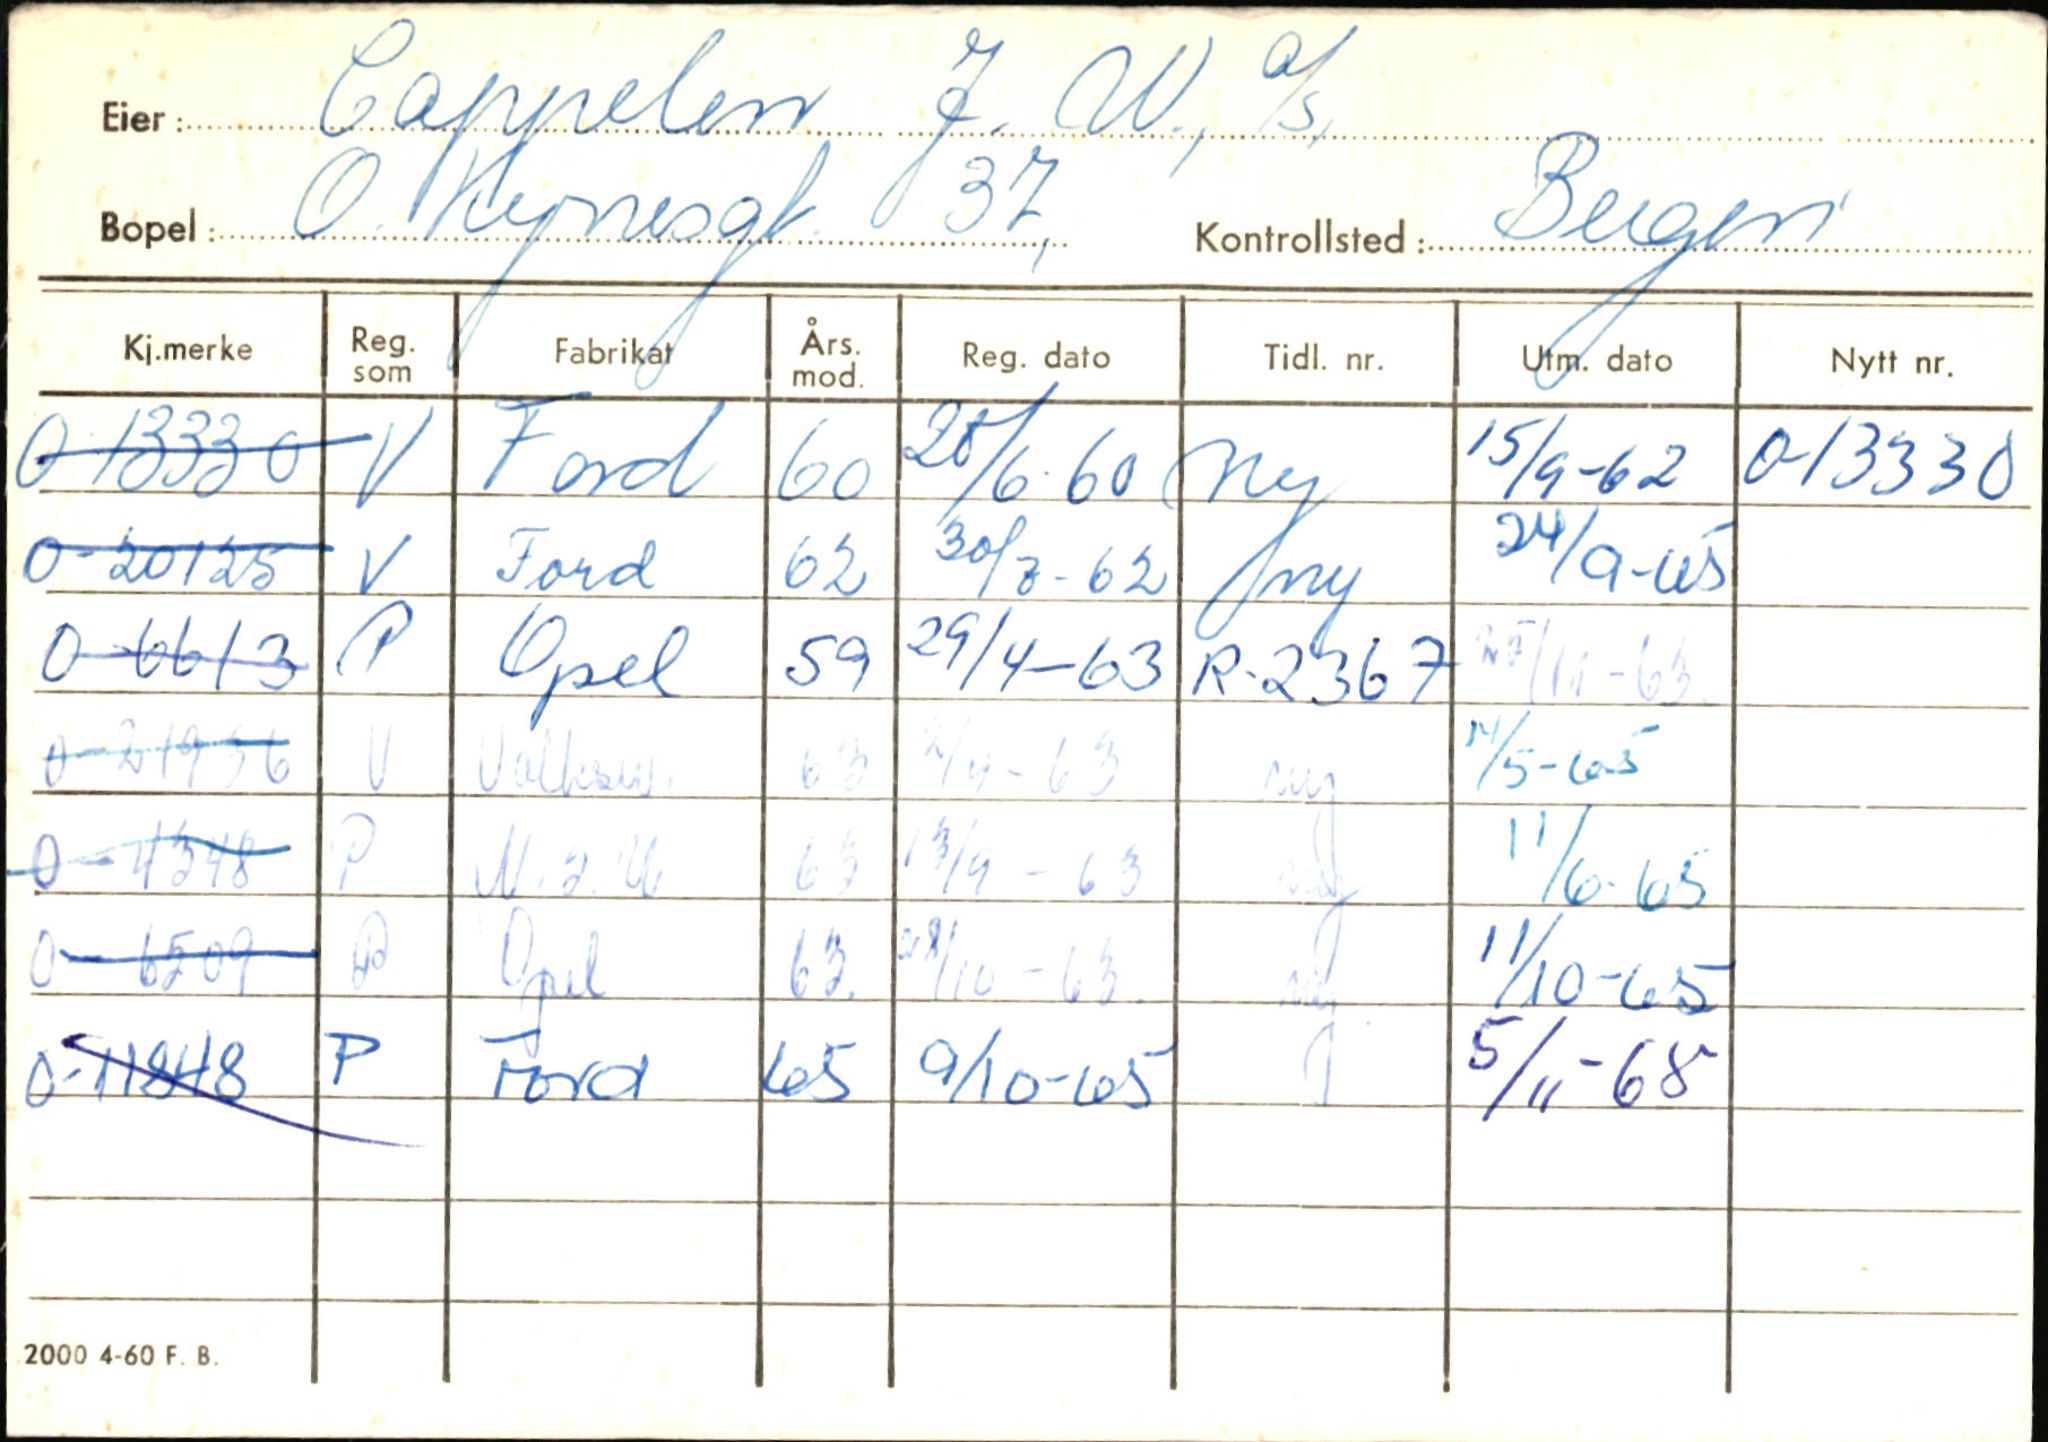 Eier: Cappelen J. W., a/s,
Bopel: O. Kyrresgt. 37, Kontrollsted: Bergen
Kj.merke Reg. som Fabrikat Års. mod. Reg. dato Tidl. nr. Utm. dato Nytt nr.
O-13330 V Ford 60 28/6-60 ny 15/9-62 O-13330
O-20125 V Ford 62 30/7-62 ny 24/9-65
O-6613 P Opel 59 29/4-63 R-2367 25/11-63.
O-21956 V Volksw. 63 2/9-63 ny 14/5-65
O-4348 P N.S.U 63 13/9-63 ny 11/6-65
O-6509 P Opel 63. 28/10-63. ny. 11/10-65
O-11848 P Ford 65 9/10-65 5/11-68
2000 4-60 F. B.